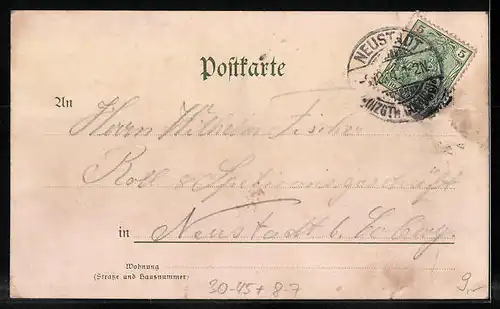 NEUSTADT
5 5
Postkarte
An
Herrn Wilhelm Fischer
Roll & Speditionsgeschäft
in Neustadt b. Coburg
Wohnung
(Straße und Hausnummer)
30-45+ 8-7
9,-